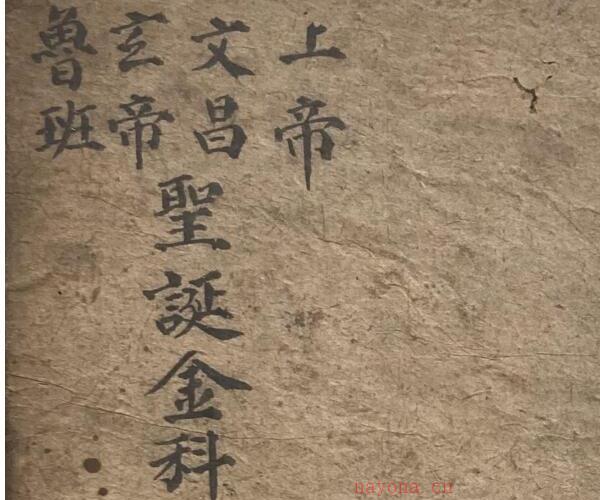 上帝
文昌
玄帝
魯班
聖誕金科
nayona.cn